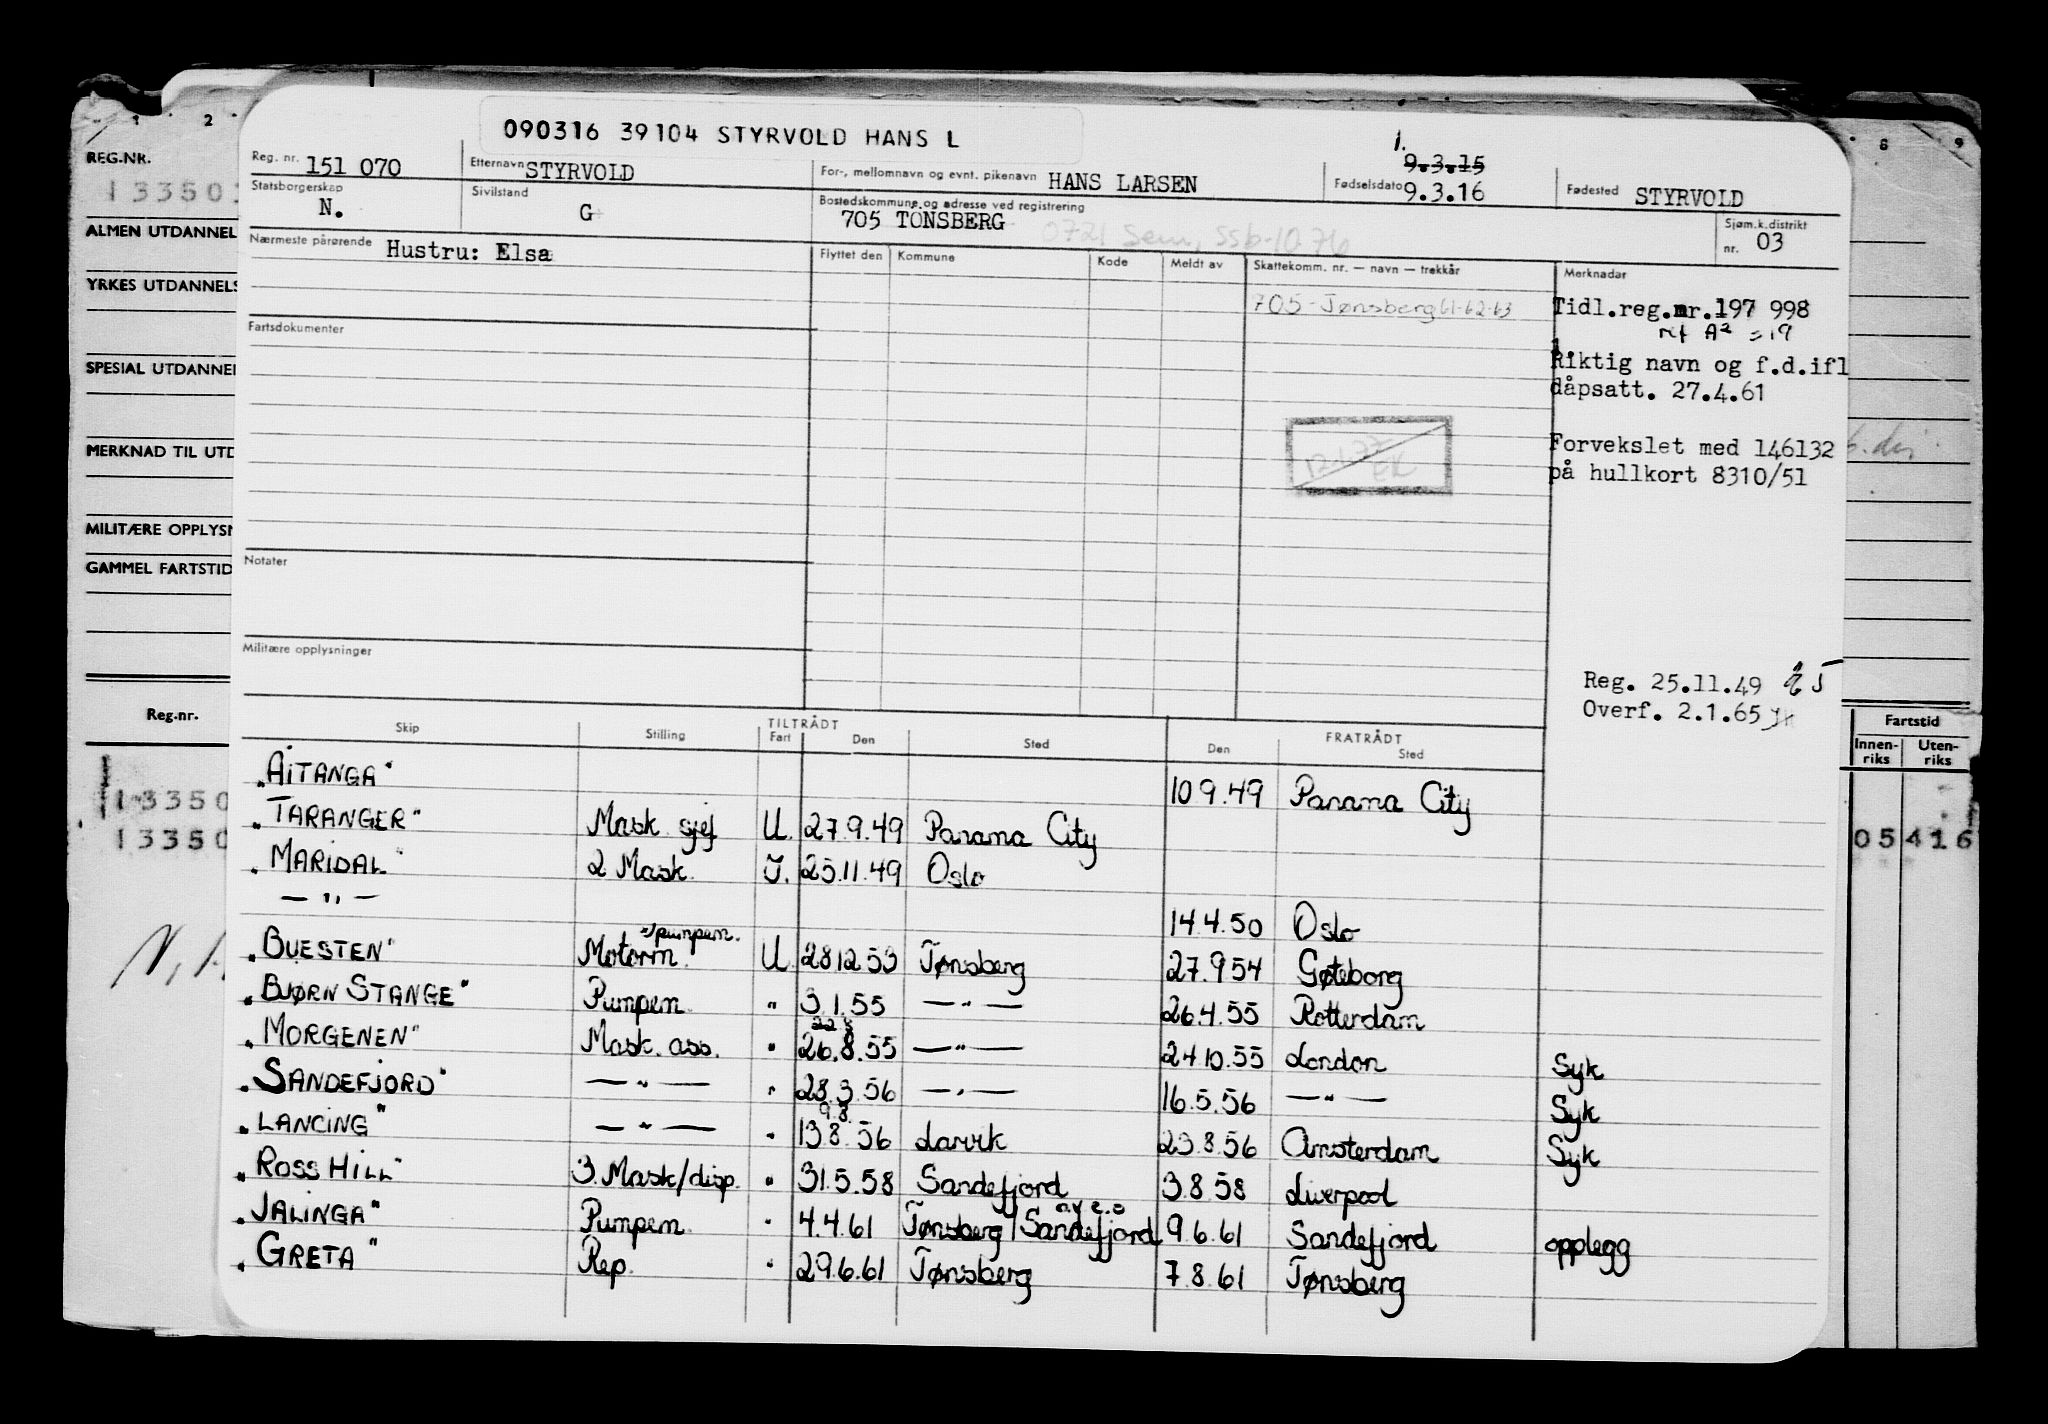 090316 39104 STYRVOLD HANS L
Reg. nr. 151 070 Etternavn STYRVOLD For-, mellomnavn og evnt. pikenavn HANS LARSEN Fødselsdato 1. 9.3.15 9.3.16 Fødested STYRVOLD
Statsborgerskap N. Sivilstand G Bostedskommune og adresse ved registrering 705 TÖNSBERG 0721 Sem, ssb-10.76 Sjøm.k.distrikt nr. 03
Nærmeste pårørende Hustru: Elsa Flyttet den Kommune Kode Meldt av Skattekomm. nr. — navn — trekkår Merknader
705 - Tønsberg 61-62-63
Tidl.reg.nr.197 998
1.
Riktig navn og f.d.ifl
dåpsatt. 27.4.61
Forvekslet med 146132
på hullkort 8310/51
Fartsdokumenter
Notater
Militære opplysninger
Reg. 25.11.49
Overf. 2.1.65
Skip Stilling TILTRÅDT Fart Den Sted FRATRÅDT Den Sted
"AITANGA" 10.9.49 Panama City
"TARANGER" Mask sjef U. 27.9.49 Panama City
"MARIDAL" 2 Mask. I. 25.11.49 Oslo
— " — 14.4.50 Oslo
"BUESTEN" Motorm. pumpem. U 28.12.53 Tønsberg 27.9.54 Gøteborg
"BJØRN STANGE" Pumpem. " 3.1.55 — " — 26.4.55 Rotterdam
22.8
"MORGENEN" Mask. ass. " 26.8.55 — " — 24.10.55 London Syk
"SANDEFJORD" — " — " 28.3.56 — " — 16.5.56 — " — Syk
9.8.
"LANCING" — " — " 13.8.56 Larvik 23.8.56 Amsterdam Syk
"ROSS HILL" 3. Mask/disp. " 31.5.58 Sandefjord 3.8.58 Liverpool
"JALINGA" Pumpem. " 4.4.61 Tønsberg/Sandefjord 9.6.61 Sandefjord opplegg
"GRETA" Rep. " 29.6.61 Tønsberg 7.8.61 Tønsberg
1 2 8 9
REG.NR.
13350
ALMEN UTDANNEL
YRKES UTDANNELS
SPESIAL UTDANNEL
MERKNAD TIL UTD
MILITÆRE OPPLYSN
GAMMEL FARTSTID
Reg.nr.
13350
13350
Fartstid
Innen-riks Uten-riks
05 416